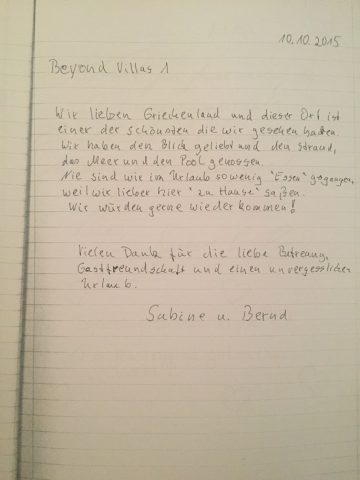 10.10.2015
Beyond Villas 1
Wir lieben Griechenland und dieser Ort ist
einer der schönsten die wir gesehen haben.
Wir haben den Blick geliebt und den Strand,
das Meer und den Pool genossen.
Nie sind wir im Urlaub sowenig "Essen" gegangen,
weil wir lieber hier "zu Hause" saßen.
Wir würden gerne wieder kommen!
Vielen Dank für die liebe Betreuung,
Gastfreundschaft und einen unvergesslichen
Urlaub.
Sabine u. Bernd